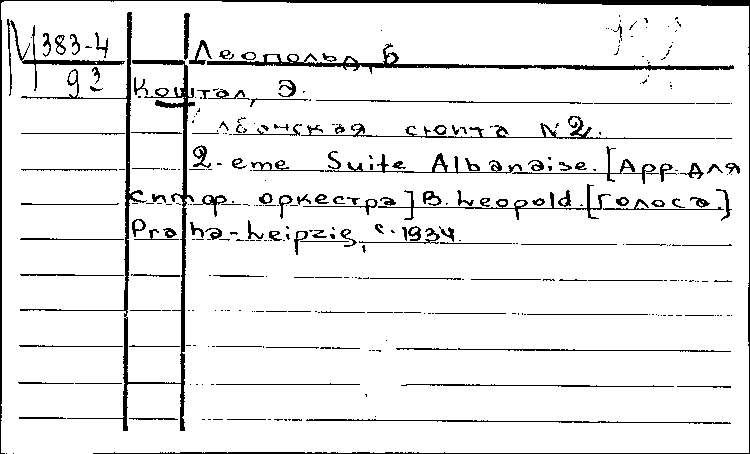 М 383-4
93
Леопольд, Б
Коштал, Э.
лбанская сюита №2.
2-eme Suite Albanaise. [Арр. для
симф. оркестра] B. Leopold. [Голоса.]
Praha-Leipzig, c. 1934